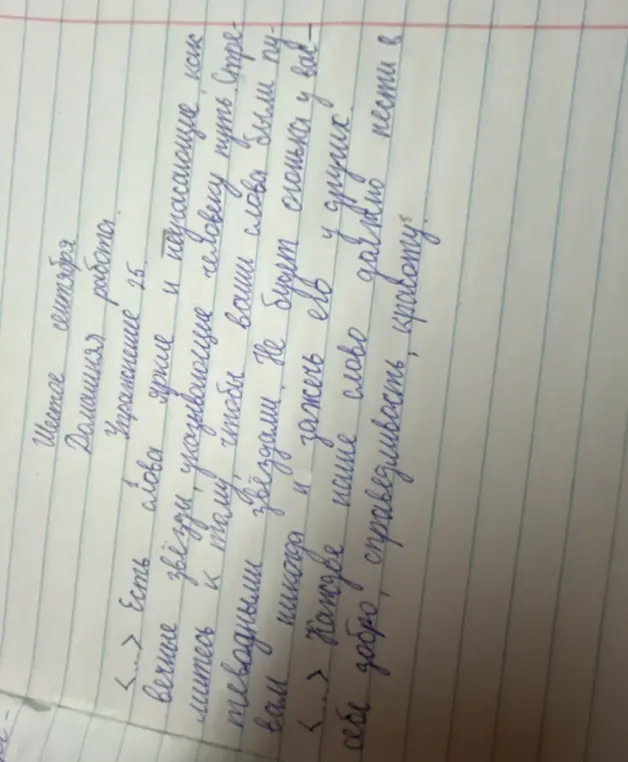 Шестое сентября
Домашняя работа
Упражнение 25.
<...> Есть слова яркие и неугасающие, как
вечные звёзды, указывающие человеку путь. Стре-
митесь к тому, чтобы ваши слова были пу-
теводными звёздами. Не будет огонька у вас –
вам никогда и зажечь его у других.
<...> Каждое наше слово должно нести в
себе добро, справедливость, красоту.